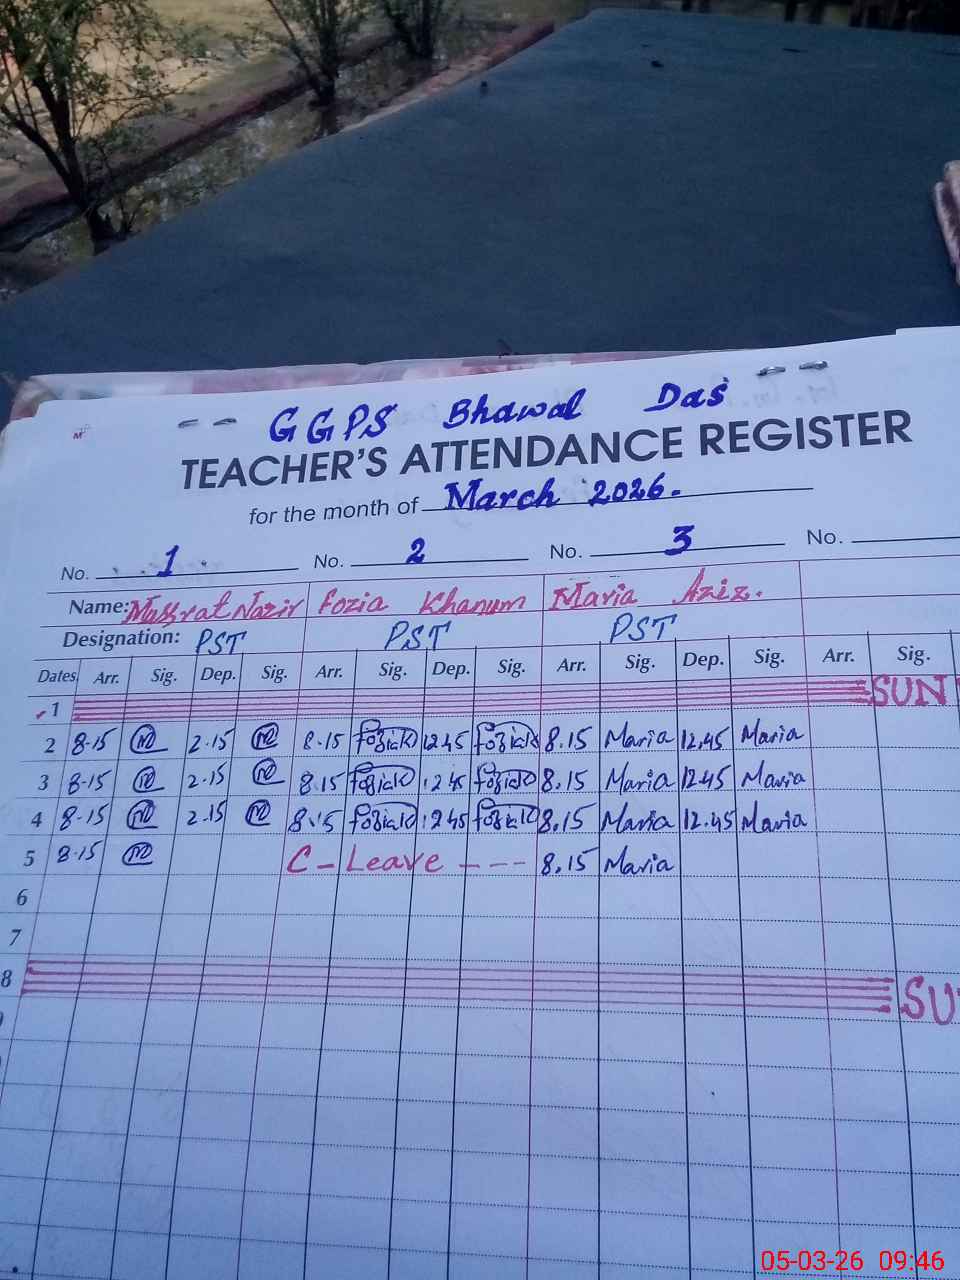 GGPS Bhawal Das
TEACHER'S ATTENDANCE REGISTER
for the month of March 2026.
No. 1 No. 2 No. 3 No.
Name: Massrat Nazir Fozia Khanum Maria Aziz.
Designation: PST PST PST
Dates Arr. Sig. Dep. Sig. Arr. Sig. Dep. Sig. Arr. Sig. Dep. Sig. Arr. Sig.
1 SUN
2 8-15 2.15 8.15 12.45 8.15 Maria 12.45 Maria
3 8-15 2.15 8.15 12 45 8.15 Maria 12.45 Maria
4 8-15 2.15 8.15 12 45 8.15 Maria 12.45 Maria
5 8.15 C - Leave - - - 8.15 Maria
6
7
8 SU
05-03-26 09:46